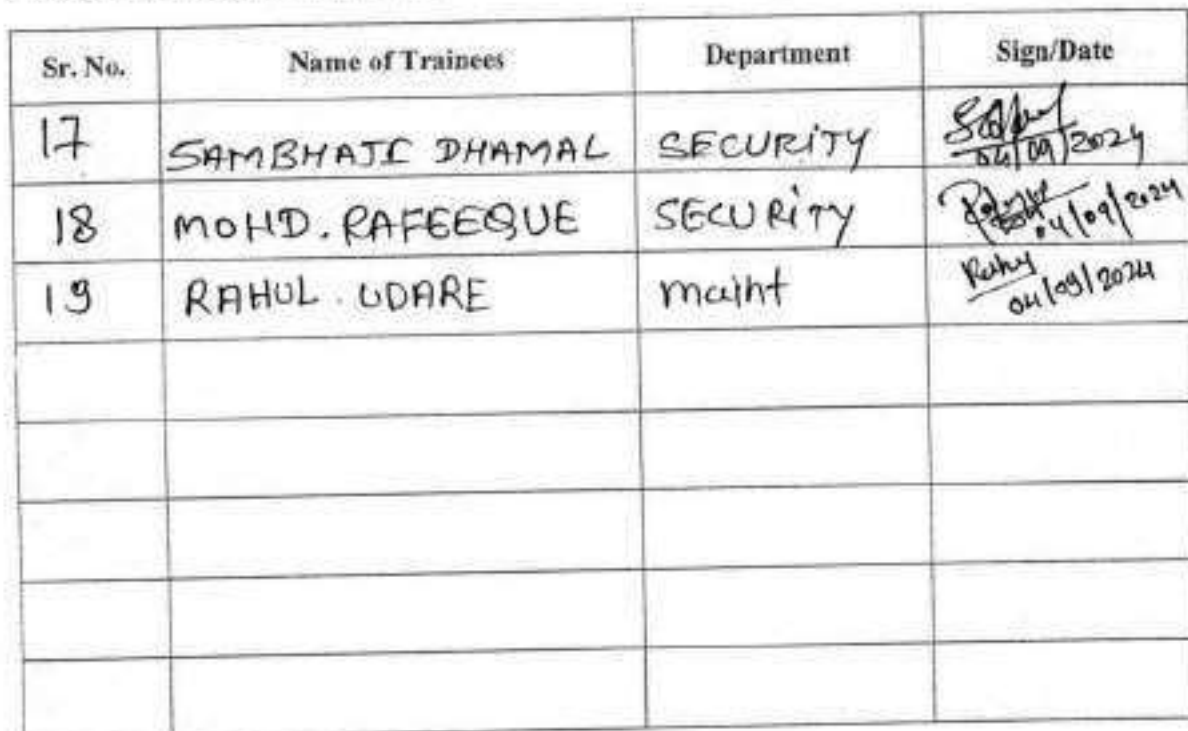 Sr. No. Name of Trainees Department Sign/Date
17 SAMBHAJI DHAMAL SECURITY 04/09/2024
18 MOHD. RAFEEQUE SECURITY 04/09/2024
19 RAHUL UDARE maint 04/09/2024